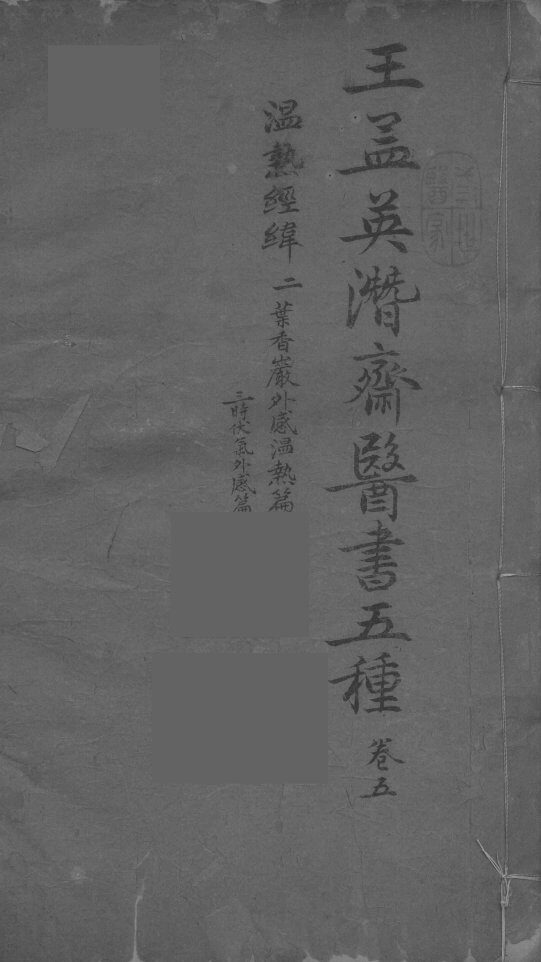 王孟英潛齋醫書五種 卷五
温熱經緯 二葉香巖外感温熱篇
三時伏氣外感篇